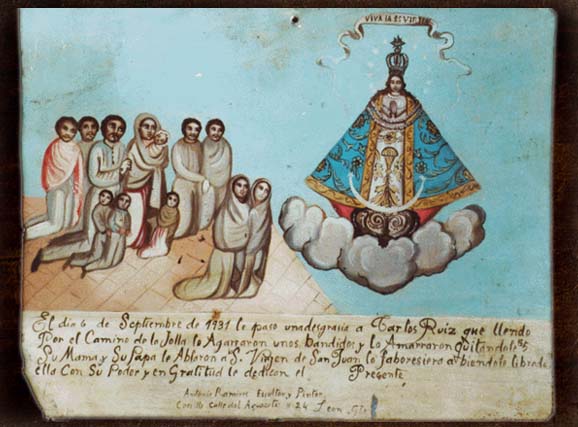 VIVA LA SS VIRGEN
El dia 6 de Septiembre de 1931 le paso una desgrasia a Carlos Ruiz que llendo
Por el Camino de lo Jolla lo Agarraron unos bandidos y lo Amarraron Quitandole $5
Su Mama y Su Papa le Ablaron a S. Virgen de San Juan lo faboresiera abiendolo librado
ella Con Su Poder y en Gratitud le dedicon el Presente
Antonio Ramires Escultor y Pintor
Calle del Aguacate # 24 Leon, Gto